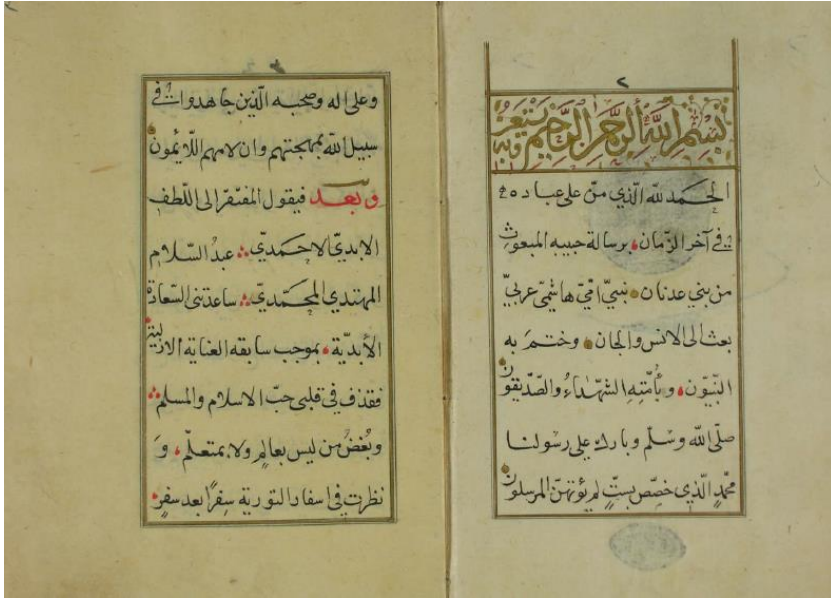 ٢
بسم الله الرحمن الرحيم
الحمد لله الّذي منّ على عباده
في آخر الزّمان برسالة حبيبه المبعوث
من بني عدنان نبيّ امّيّ هاشمىّ عربيّ
بعث الى الانس والجان وختم به
النّبيّون وبأمّته الشهداء والصّدّيقون
صلّى الله وسلّم وبارك على رسولنا
محمّدٍ الّذي خصّص بستّ لم يؤتهنّ المرسلون
وعلى اله وصحبه الّذين جاهدوا في
سبيل الله بمهجتهم وان لامهم اللّايمون
وبعد فيقول المفتقر الى اللّطف
الابديّ الاحمديّ عبدُ السّلام
المهتدي المحمّديّ ساعدتنى السّعادة
الأبديّة بموجب سابقه العناية الازلية
فقذف في قلبى حبّ الاسلام والمسلم
وبُغضُ من ليس بعالمٍ ولا بمتعلّم وَ
نظرت في اسفار التورية سِفرًا بعد سفرٍ